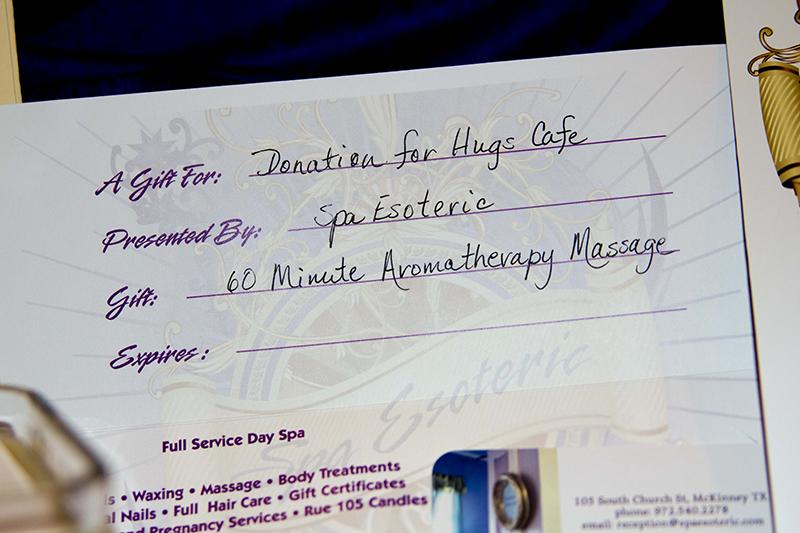 A Gift For: Donation for Hugs Cafe
Presented By: Spa Esoteric
Gift: 60 Minute Aromatherapy Massage
Expires:
Spa Esoteric
Full Service Day Spa
• Waxing • Massage • Body Treatments
Nails • Full Hair Care • Gift Certificates
Pregnancy Services • Rue 105 Candles
105 South Church St, McKinney TX
phone: 972.540.2278
email: reception@spaesoteric.com